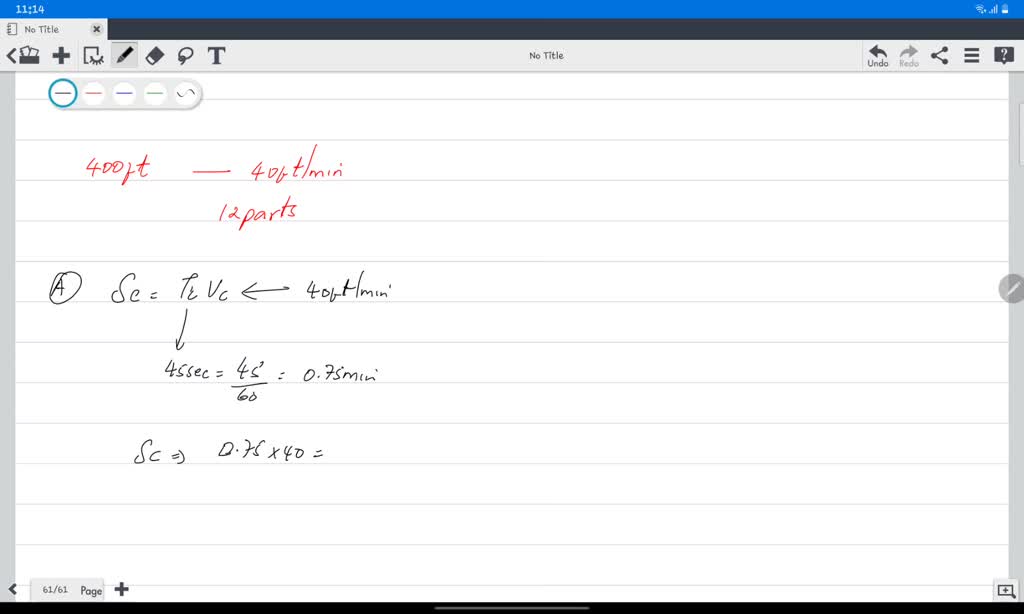 11:14
No Title
No Title
Undo
Redo
400ft — 40ft/min
12parts
A Sc = TL Vc ← 40ft/min
45sec = 45/60 = 0.75min
Sc ⇒ 0.75 × 40 =
61/61 Page